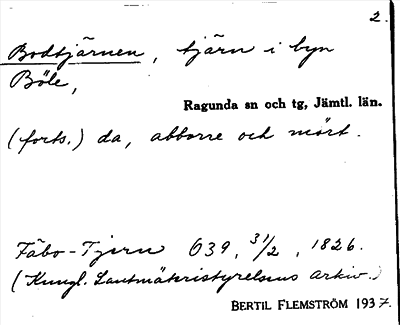 2.
Bodtjärnen, tjärn i byn
Böle,
Ragunda sn och tg, Jämtl. län.
(forts.) da, abborre och mört.
Fäbo-Tjern O39, 31/2, 1826.
(Kungl. Lantmäteristyrelsens arkiv.)
BERTIL FLEMSTRÖM 1937.